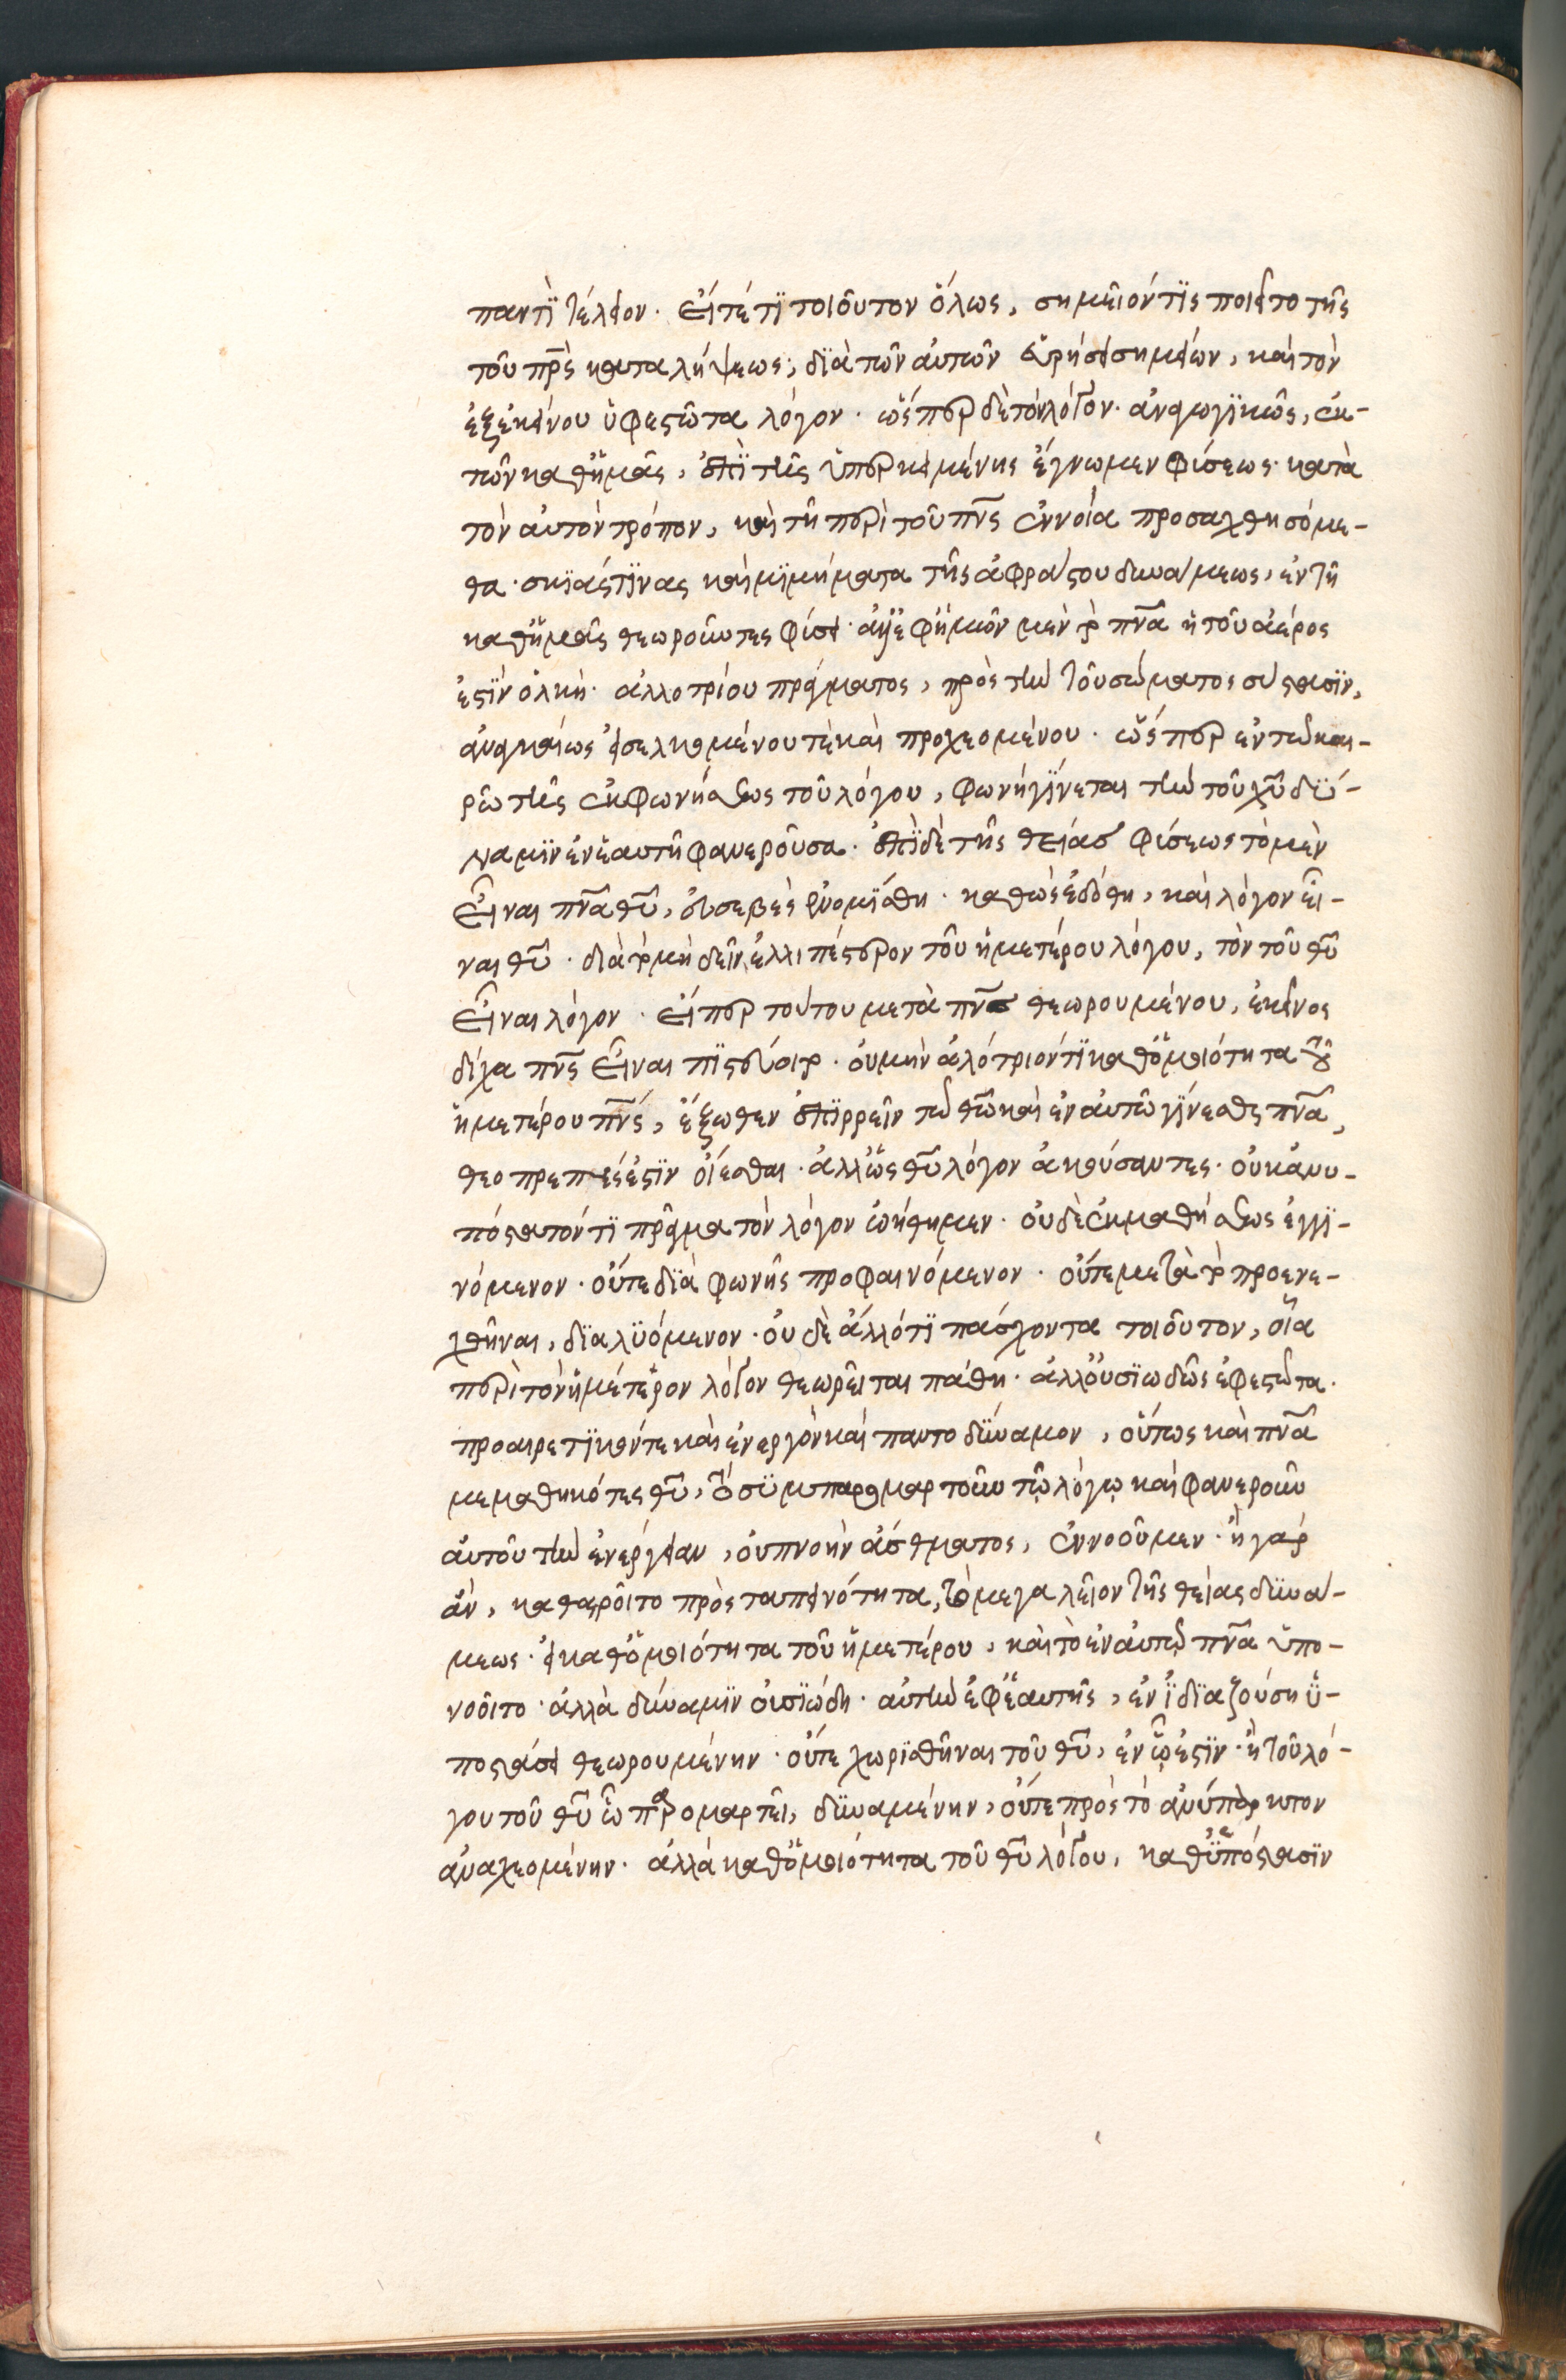 παντὶ τέλειον· εἴτέ τϊ τοιοῦτον ὅλως, σημεῖόν τϊς ποιεῖτο τῆς
τοῦ πρ̅ς καταλήψεως, δϊὰ τῶν αὐτῶν εὑρήσει σημείων, καὶ τὸν
ἐξ ἐκείνου ὑφεστῶτα λόγον· ὥσπερ δὲ τὸν λόγον· ἀναγωγϊκῶς, ἐκ-
τῶν καθ' ἡμᾶς, ἐπὶ τῆς ὑπερκειμένης ἔγνωμεν φύσεως· κατὰ
τὸν αὐτὸν τρόπον, καὶ τῆ περὶ τοῦ πν̅ς ἐννοία προσαχθησόμε-
θα· σκϊάς τϊνας καὶ μϊμήματα τῆς ἀφράστου δυνάμεως, ἐν τῆ
καθ' ἡμᾶς θεωροῦντες φύσει· ἀλλ' ἐφ' ἡμῶν μὲν τὸ πν̅α ἡ τοῦ ἀέρος
ἐστϊν ὁλκὴ· ἀλλοτρίου πράγματος, πρὸς τὴν τοῦ σώματος σύστασϊν,
ἀναγκαίως εἰσελκομένου τὲ καὶ προχεομένου· ὥσπερ ἐν τῶ και-
ρῶ τῆς ἐκφωνήσεως τοῦ λόγου, φωνὴ γϊνεται τὴν τοῦ λγ̅υ δύ-
ναμϊν ἐν ἑαυτῆ φανεροῦσα· ἐπϊ δὲ τῆς θείας φύσεως τὸ μὲν
εἶναι πν̅α θ̅υ, εὐσεβὲς ἐνομϊσθη· καθὼς ἐδόθη, καὶ λόγον εἶ-
ναι θ̅υ· διὰ τὸ μὴ δεῖν ἐλλιπέστερον τοῦ ἡμετέρου λόγου, τὸν τοῦ θ̅υ
εἶναι λόγον· εἴπερ τούτου μετὰ πν̅ς θεωρουμένου, ἐκεῖνος
δίχα πν̅ς εἶναι πϊστεύοιτο· οὐ μὴν ἀλότριόν τϊ καθ' ὁμοιότητα τοῦ
ἡμετέρου πν̅ς, ἔξωθεν ἐπϊρρεῖν τῶ θ̅ω καὶ ἐν αὐτῶ γϊνεσθε πν̅α,
θεοπρεπὲς ἐστϊν οἴεσθαι· ἀλλ' ὡς θ̅υ λόγον ἀκούσαντες· οὐκ ἀνυ-
πόστατόν τϊ πρᾶγμα τὸν λόγον ὠήθημεν· οὐδὲ ἐκ μαθήσεως ἐγγϊ-
νόμενον· οὔτε δϊὰ φωνῆς προφαινόμενον· οὔτε μετὰ τὸ προενε-
χθῆναι, δϊαλϋόμενον· οὐδὲ ἄλλό τϊ πάσχοντα τοιοῦτον, οἷα
περὶ τὸν ἡμέτερον λόγον θεωρεῖται πάθη· ἀλλ' οὐσϊωδῶς ἐφεστῶτα·
προαιρετϊκόν τε καὶ ἐνεργὸν καὶ παντοδϋναμον, οὕτως καὶ πν̅α
μεμαθηκότες θ̅υ, τὸ σϋμπαρομαρτοῦν τῷ λόγῳ καὶ φανεροῦν
αὐτοῦ τὴν ἐνέργειαν, οὐ πνοὴν ἄσθματος, ἐννοοῦμεν· ἢ γὰρ
ἂν, καθαιροῖτο πρὸς ταπεινότητα, τὸ μεγαλεῖον τῆς θείας δϋνά-
μεως· εἰ καθ' ὁμοιότητα τοῦ ἡμετέρου, καὶ τὸ ἐν αὐτῷ πν̅α ὑπο-
νοοῖτο· ἀλλὰ δύναμϊν οὐσϊώδη· αὐτὴν ἐφ' ἑαυτῆς, ἐν ϊδϊαζούση ὑ-
ποστάσει θεωρουμένην· οὔτε χωρϊσθῆναι τοῦ θ̅υ, ἐν ᾧ ἐστϊν· ἢ τοῦ λό-
γου τοῦ θ̅υ ᾧ παρομαρτεῖ, δϋναμένην, οὔτε πρὸς τὸ ἀνύπαρκτον
ἀναχεομένην· ἀλλὰ καθ' ὁμοιότητα τοῦ θ̅υ λόγου, καθ' ϋπόστασϊν